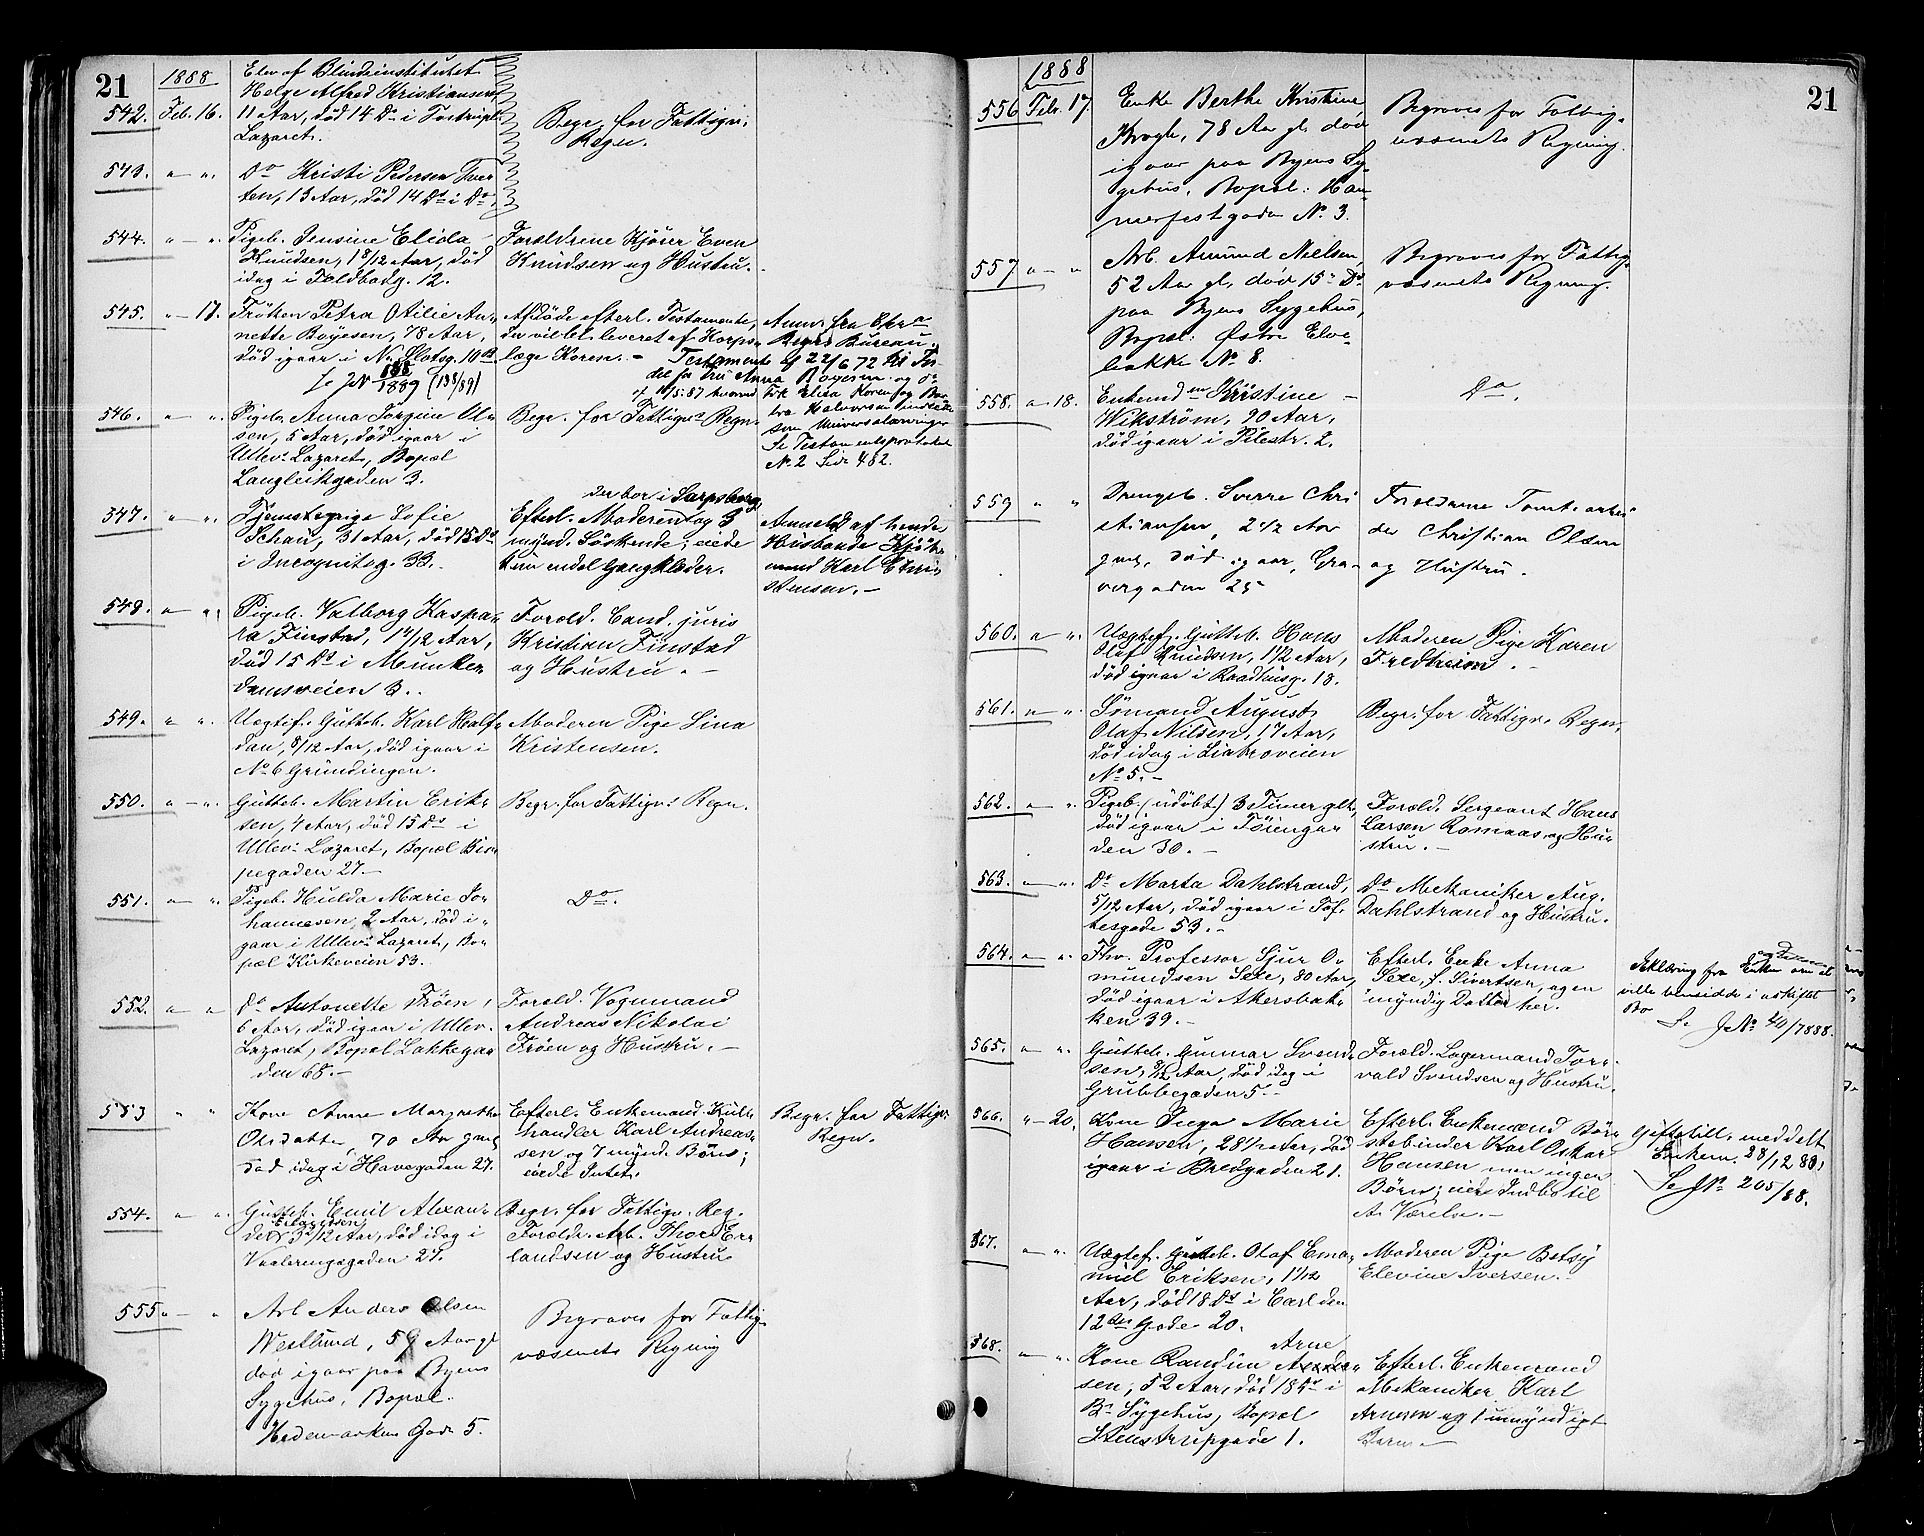 21
1888
542. Feb. 16.
Elev af Blindeinstitutet
Helge Alfred Kristiansen
11 Aar, død 14 Ds i
Lazaret.
Begr. for Fattigv.
Regn.
543. " - "
Do Kristi Pedersen Tver
ten, 13 Aar, død 14 Ds i Do.
544. " - "
Pigeb. Jensine Elida
Knudsen, 1 8/12 Aar, død
idag i Feldbadg. 12.
Forældrene Kjører Even
Knudsen og Hustru.
545. " - 17.
Frøken Petra Otilie An-
nette Boyesen, 78 Aar,
død igaar i N. Slotsg. 10
Se JN 138/1889 (138/89)
Afdøde efterl. Testamente,
der vil bli leveret af Korps-
læge Koren. -
Anm. fra
Begr. Bureau.
Testamente af 22/6 72 til
del for Frk Anna Boyesen og
af 10/5 87 hvorved Frk Elisa Koren og
Halvorsen indsættes
som Universalarvinger
Se Testamentsprotokol
No. 2 Side 482.
546. " - "
Pigeb. Anna Jørgine Ol-
sen, 5 Aar, død igaar i
Ullev. Lazaret, Bopæl
Langleikgaden 3.
Begr. for Fattigvs Regn.
547. " - "
Tjenestepige Sofie
Schau, 31 Aar, død 15 Ds
i Incognitog. 33.
der bor i Sarpsborg
Efterl. Moderen og 3
mynd. Søskende; eiede
kun endel Gangklæder.
Anmeldt af hendes
Husbonde Kjøb-
mand Karl Chri-
stensen. -
548. " - "
Pigeb. Valborg Kaspa-
ra Finstad, 1 4/12 Aar,
død 15 Ds i Munke
damsveien 3.
Foræld. Cand. juris
Kristian Finstad
og Hustru. -
549. " - "
Uægtef. Gutteb. Karl Half
dan, 8/12 Aar, død igaar i
No 6 Gründingen.
Moderen Pige Lina
Kristensen.
550. " - "
Gutteb. Martin Erik-
sen, 4 Aar, død 15 Ds i
Ullev. Lazaret, Bopæl Bir-
pegaden 27. -
Begr. for Fattigvs Regn.
551. " - "
Pigeb. Hulda Marie Jo-
hannesen, 2 Aar, død i-
gaar i Ullev. Lazaret, Bo-
pæl Kirkeveien 53.
Do.
552. " "
Do Antonette Frøen,
6 Aar, død igaar i Ullev.
Lazaret, Bopæl Lakkega-
den 68. -
Foræld. Vognmand
Andreas Nikolai
Frøen og Hustru. -
553 " "
Kone Anne Margrethe
Olsdatter, 70 Aar gml
død idag i Havegaden 27.
Efterl. Enkemand Kul-
handler Karl Andreas-
sen og 7 mynd. Børn;
eiede Intet.
Begr. for Fattigv.
Regn.
554. " "
Gutteb. Emil Alexan-
der Erlandsen 3 2/12 Aar, død idag i
Vaalerengegaden 27.
Begr. for Fattigv. Reg.
Forældr. Arb. Thor Er-
landsen og Hustru
555 " - "
Arb Anders Olsen
Westlund, 59 Aar gl
død igaar paa Byens
Sygehus, Bopæl.
Hedemarkens Gade 5.
Begraves for Fattig-
væsenets Regning
21
1888
556 Feb. 17.
Enke Berthe Kristine
Krogh, 78 Aar gl. død
igaar paa Byens Sy-
gehus, Bopæl: Ham-
merfestgaden No. 3.
Begraves for Fattig-
væsenets Regning.
557 " - "
Arb. Amund Nielsen,
52 Aar gl, død 15de Ds
paa Byens Sygehus,
Bopæl: Østre Elve-
bakke No 8.
Begraves for Fattig-
væsenets Regning.
558. " 18.
Enkemden Kristine -
Wikstrøm, 90 Aar,
død igaar i Pilestr. 2.
Do.
559 " "
Drengeb. Sverre Chri
stiansen, 2 1/2 Aar
gml, død igaar, Gra-
vergaden 25
Forældrene Tomtearbei-
der Christian Olsen
og Hustru.
560. " - "
Uægtef. Gutteb. Hans
Olaf Knudsen, 1 1/2 Aar,
død igaar i Raadhusg. 18.
Moderen Pige Karen
Fredheim. -
561. " - "
Sømand August
Olaf Nilsen, 17 Aar,
død idag i Liabroveien
No 5. -
Begr. for Fattigv. Regn.
562. " - "
Pigeb. (udøbt) 3 Timer glt,
død igaar i Tøiengar
den 30. -
Foræld. Sergeant Hans
Larsen Romaas og Hu-
stru. -
563. " - "
Do Marta Dahlstrand,
5/12 Aar, død igaar i Tof-
tesgade 53. -
Do Mekaniker Aug.
Dahlstrand og Hustru.
564. " - "
Fhv. Professor Sjur A-
mundsen Sexe, 80 Aar,
død igaar i Akersbak-
ken 39. -
Efterl. Enke Anna
Sexe, f. Sivertsen, og en
myndig Datter her.
Erklæring fra Enken om at
ville hensidde i uskiftet
Bo
Se JNo 40/1888.
565. " - "
Gutteb. Gunnar Svend-
sen, 2/12 Aar, død idag i
Grubbegaden 5. -
Foræld. Lagermand Tor-
vald Svendsen og Hustru.
566. " - 20.
Kone Inga Marie
Hansen, 28 1/2 Aar, død
igaar i Bredgaden 21.
Efterl. Enkemand Bør-
stebinder Karl Oskar
Hansen men ingen
Børn; eiede Indbo til
et Værelse. -
Giftetill. meddelt
Enkem. 28/12 88.
Se JNo 205/88.
567. " - "
Uægtef. Gutteb. Olaf Ema-
nuel Eriksen, 1 1/12
Aar, død 18 Ds i Carl den
12tes Gade 20.
Moderen Pige Betsy
Elevine Iversen. -
568. " - "
Kone Randine Arne
sen, 52 Aar, død 18 Ds i
Bs Sygehus, Bopæl
Stenstrupgade 1.
Efterl. Enkemand
Mekaniker Karl
Arnesen og 1 umyndigt
Barn. -